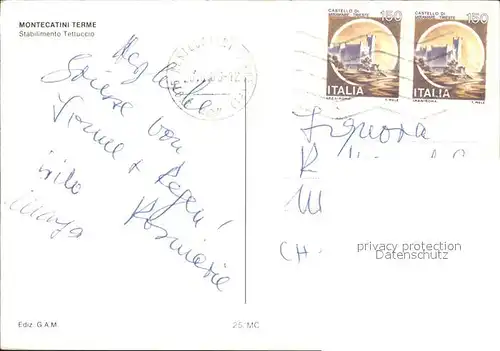 MONTECATINI TERME
Stabilimento Tettuccio
Herzliche
Grüsse von
Sonne + Regen!
Rosmarie
CASTELLO DI
MIRAMARE · TRIESTE
150
ITALIA
CASTELLO DI
MIRAMARE · TRIESTE
150
ITALIA
Signora
R
M
CH
privacy protection
Datenschutz
Ediz. G.A.M.
25. MC